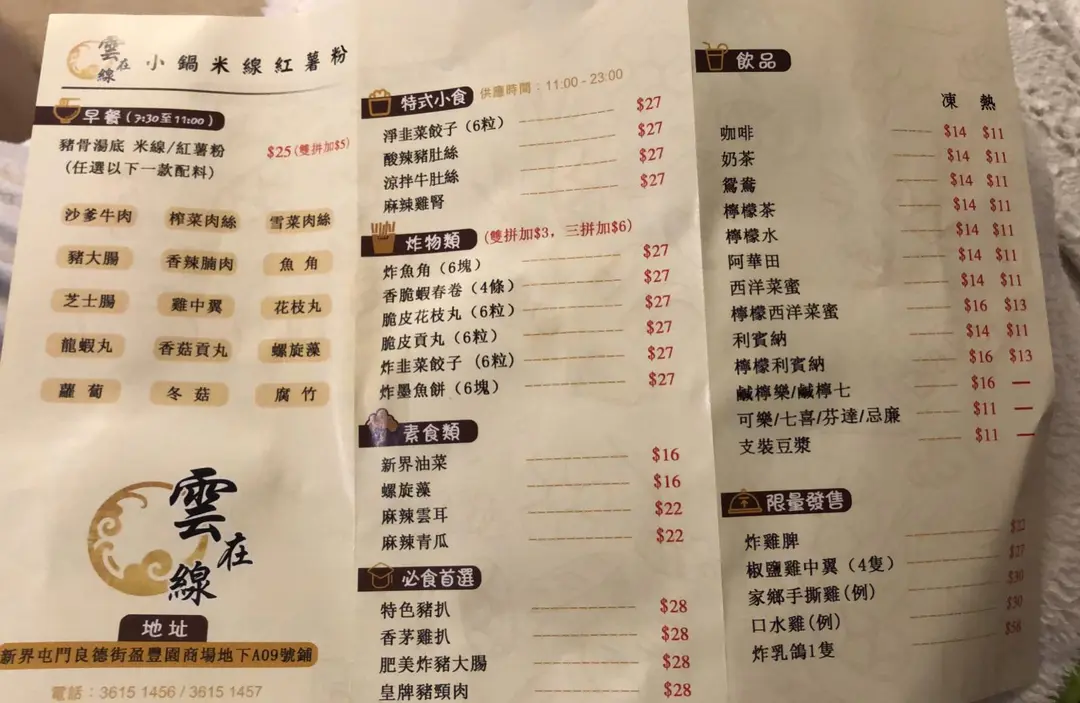 雲在線 小鍋米線紅薯粉
早餐(7:30至11:00)
豬骨湯底 米線/紅薯粉 $25(雙拼加$5)
(任選以下一款配料)
沙爹牛肉 榨菜肉絲 雪菜肉絲
豬大腸 香辣腩肉 魚角
芝士腸 雞中翼 花枝丸
龍蝦丸 香菇貢丸 螺旋藻
蘿蔔 冬菇 腐竹
雲在線
地址
新界屯門良德街盈豐園商場地下A09號鋪
電話：3615 1456 / 3615 1457
特式小食 供應時間：11:00 - 23:00
淨韭菜餃子（6粒） $27
酸辣豬肚絲 $27
涼拌牛肚絲 $27
麻辣雞腎 $27
炸物類 (雙拼加$3，三拼加$6)
炸魚角（6塊） $27
香脆蝦春卷（4條） $27
脆皮花枝丸（6粒） $27
脆皮貢丸（6粒） $27
炸韭菜餃子（6粒） $27
炸墨魚餅（6塊） $27
素食類
新界油菜 $16
螺旋藻 $16
麻辣雲耳 $22
麻辣青瓜 $22
必食首選
特色豬扒 $28
香茅雞扒 $28
肥美炸豬大腸 $28
皇牌豬頸肉 $28
飲品
凍 熱
咖啡 $14 $11
奶茶 $14 $11
鴛鴦 $14 $11
檸檬茶 $14 $11
檸檬水 $14 $11
阿華田 $14 $11
西洋菜蜜 $14 $11
檸檬西洋菜蜜 $16 $13
利賓納 $14 $11
檸檬利賓納 $16 $13
鹹檸樂/鹹檸七 $16 —
可樂/七喜/芬達/忌廉 $11 —
支裝豆漿 $11 —
限量發售
炸雞脾 $22
椒鹽雞中翼（4隻） $27
家鄉手撕雞(例) $30
口水雞(例) $30
炸乳鴿1隻 $56